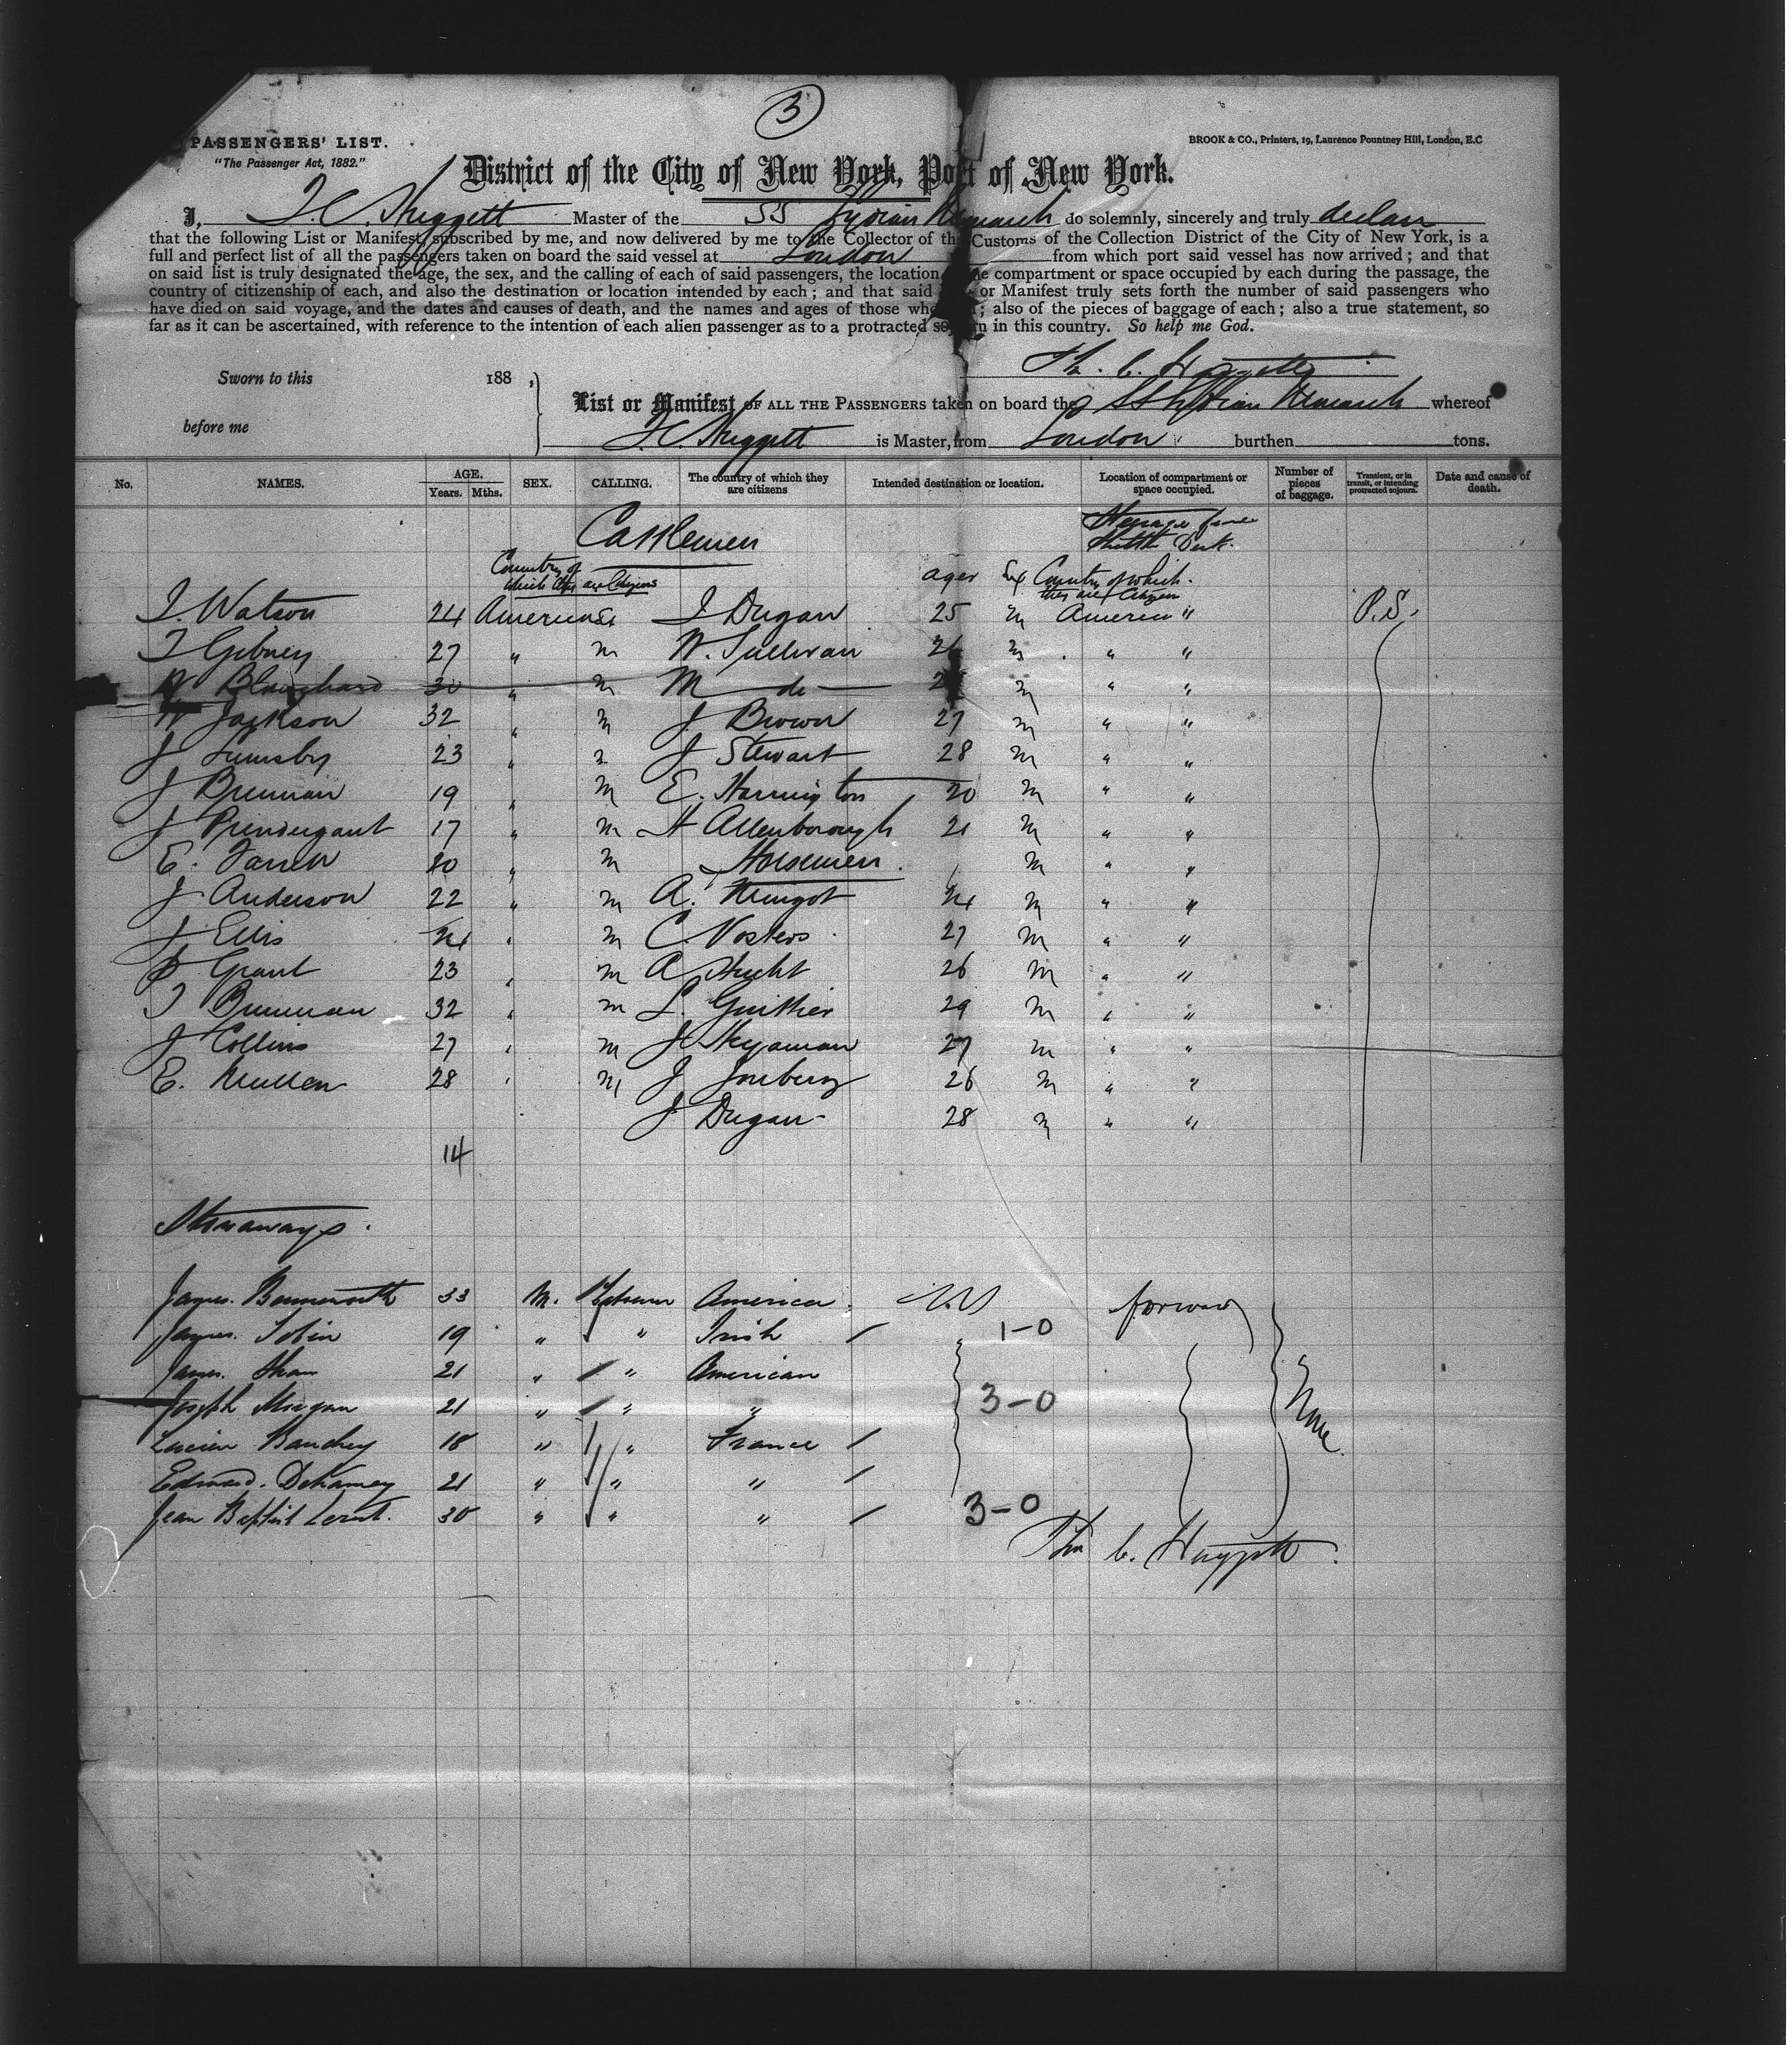 3
PASSENGERS' LIST.
"The Passenger Act, 1882."
BROOK & CO., Printers, 19, Laurence Pountney Hill, London, E.C
District of the City of New York, Port of New York.
I, T. C. Huggett Master of the SS Lydian Monarch do solemnly, sincerely and truly declare
that the following List or Manifest, subscribed by me, and now delivered by me to the Collector of the Customs of the Collection District of the City of New York, is a
full and perfect list of all the passengers taken on board the said vessel at London from which port said vessel has now arrived; and that
on said list is truly designated the age, the sex, and the calling of each of said passengers, the location compartment or space occupied by each during the passage, the
country of citizenship of each, and also the destination or location intended by each; and that said or Manifest truly sets forth the number of said passengers who
have died on said voyage, and the dates and causes of death, and the names and ages of those who ; also of the pieces of baggage of each; also a true statement, so
far as it can be ascertained, with reference to the intention of each alien passenger as to a protracted sojourn in this country. So help me God.
Tho. C. Huggett
Sworn to this 188 ,
before me
List or Manifest OF ALL THE PASSENGERS taken on board the SS Lydian Monarch whereof
T C Huggett is Master, from London burthen tons.
No. NAMES. AGE. Years. Mths. SEX. CALLING. The country of which they are citizens Intended destination or location. Location of compartment or space occupied. Number of pieces of baggage. Transient, or in transit, or intending protracted sojourn. Date and cause of death.
Cattlemen
Country of which they are Citizens ages Sex Country of which they are Citizens
T. Watson 24 American Sex J Dugan 25 m America " P.S.
T Gibney 27 " m W. Sullivan 26 m " "
W Blanchard 30 " m M do m " "
W Jackson 32 " m J Brown 27 m " "
J Lumsby 23 " m J Stewart 28 m " "
J Brennan 19 " m E. Harrington 20 m " "
J Prendergast 17 " m H Attenborough 21 m " "
E. Farrell 20 " m Horsemen. m " "
J Anderson 22 " m A. 24 m " "
J Ellis 24 " m C. Vosters 27 m " "
Grant 23 " m A 26 m " "
T Brennan 32 " m L. Guthier 29 m " "
J Collins 27 " m J. 27 m " "
E. Mullen 28 " m J 26 m " "
J Dugan 28 m " "
14
Stowaways.
James. 33 M. America. N.Y forward
James. Tobin 19 " " Irish 1-0
James. Shaw 21 " " American
Joseph Morgan 21 " " " 3-0 None.
Lucien 18 " " France
Edward. 21 " " "
Jean Baptist 30 " " " 3-0
Tho C. Huggett.